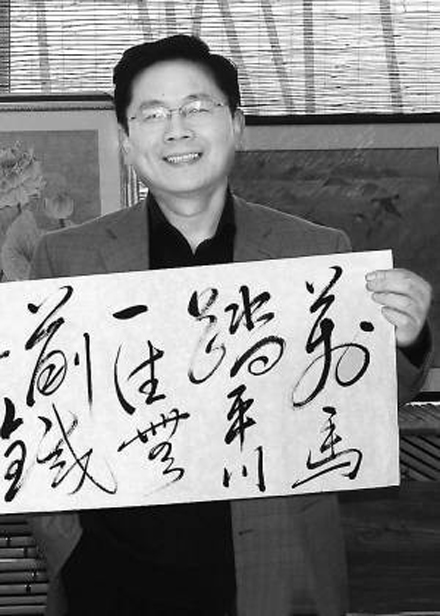 萬馬
踏平川
一往無
前鐵